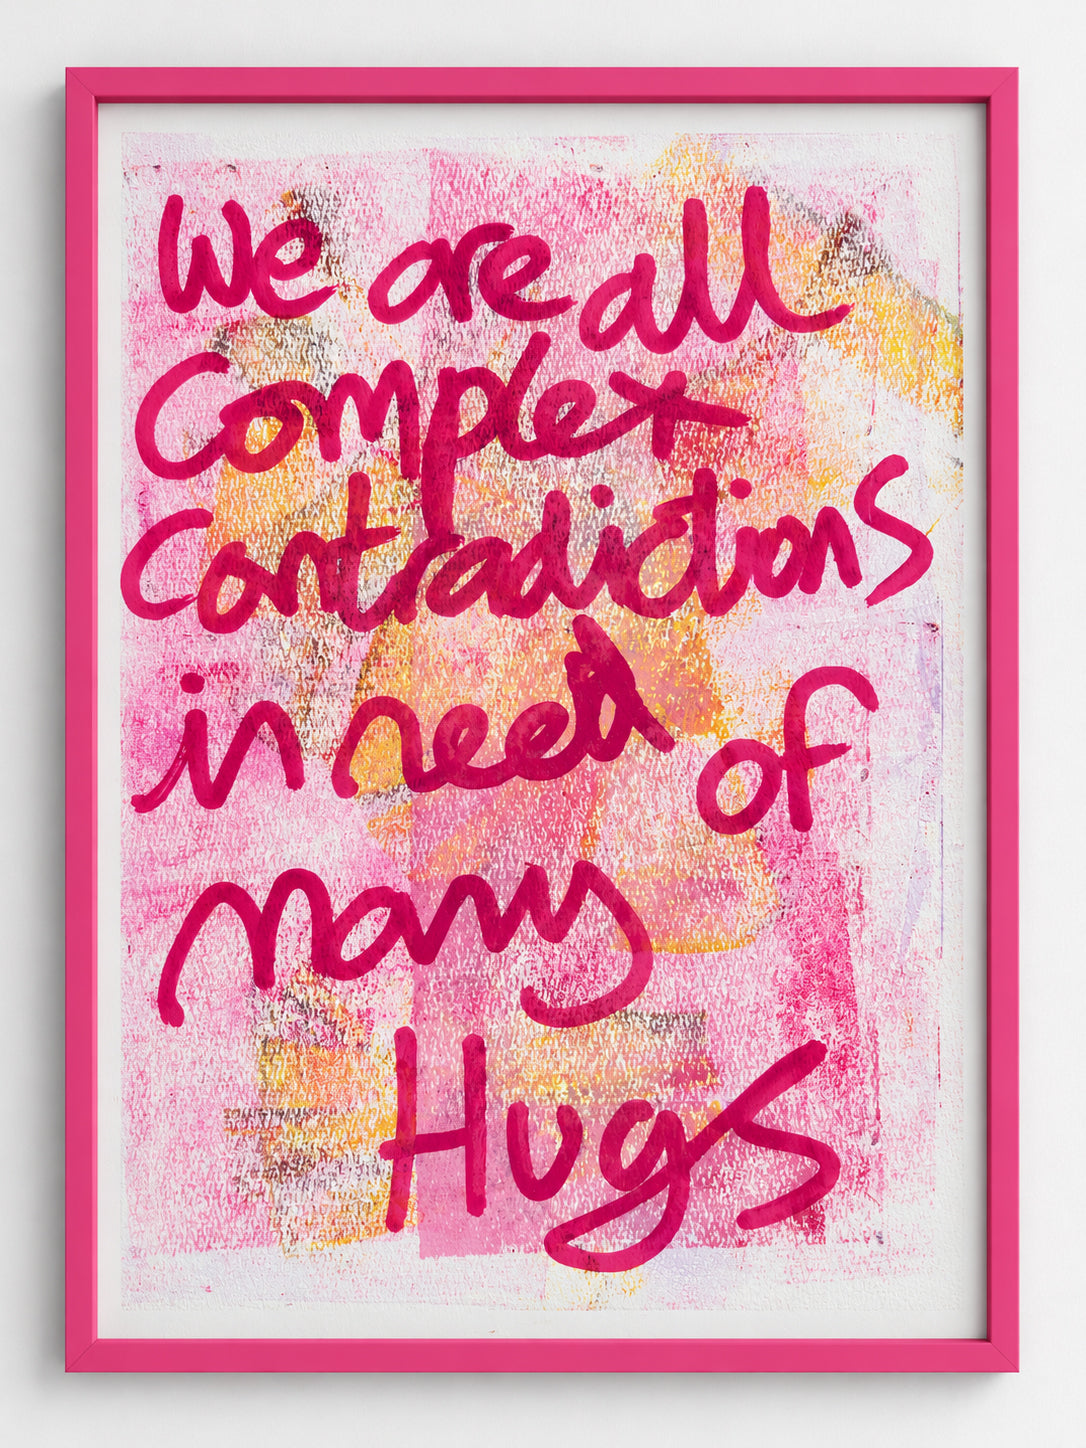 We are all
Complex
Contradictions
in need of
many
Hugs